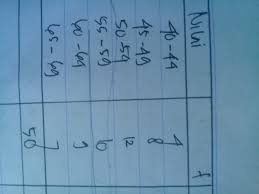 Nilai f
40 - 44 4
45 - 49 8
50 - 54 12
55 - 59 6
60 - 64 9
65 - 69 7
50